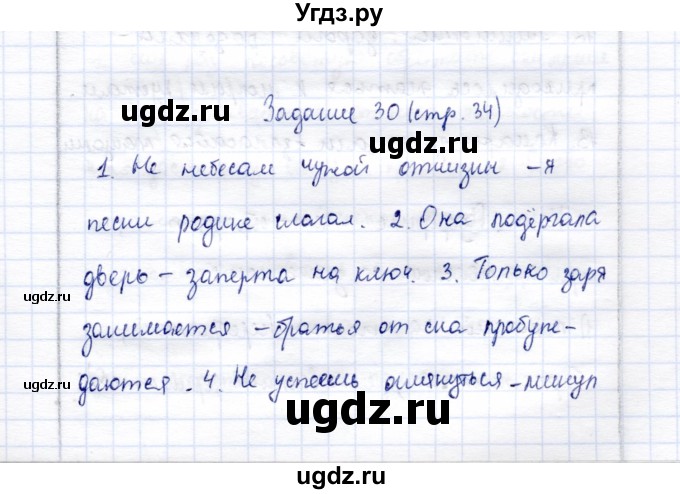 Угдз.ру
ugdz.ru
Задание 30 (стр. 34)
ugdz.ru
1. Не небесам чужой отчизны – я
песни родине слагал. 2. Она подёргала
ugdz.ru
дверь – заперта на ключ. 3. Только заря
ugdz.ru
занимается – братья от сна пробуж-
ugdz.ru
даются. 4. Не успеешь оглянуться – минул
ugdz.ru
ugdz.ru